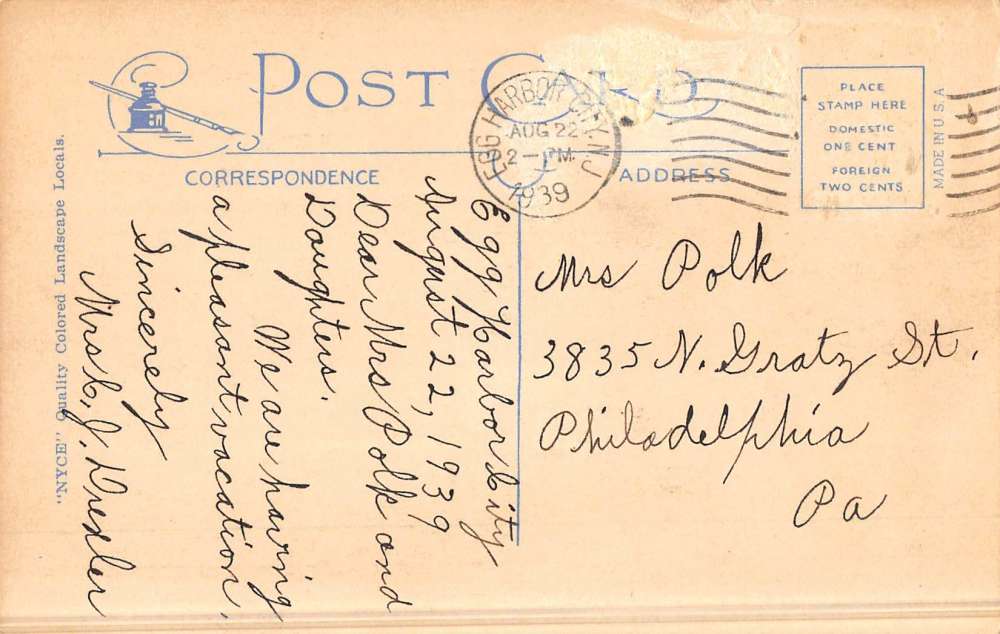 POST CARD
EGG HARBOR CITY, N.J.
AUG 22
2 - PM
1939
PLACE
STAMP HERE
DOMESTIC
ONE CENT
FOREIGN
TWO CENTS
MADE IN U.S.A.
CORRESPONDENCE
ADDRESS
"NYCE" Quality Colored Landscape Locals.
Egg Harbor City
August 22, 1939
Dear Mrs Polk and
Daughters.
We are having
a pleasant vacation.
Sincerely
Mrs C. J. Drexler
Mrs Polk
3835 N. Gratz St.
Philadelphia
Pa